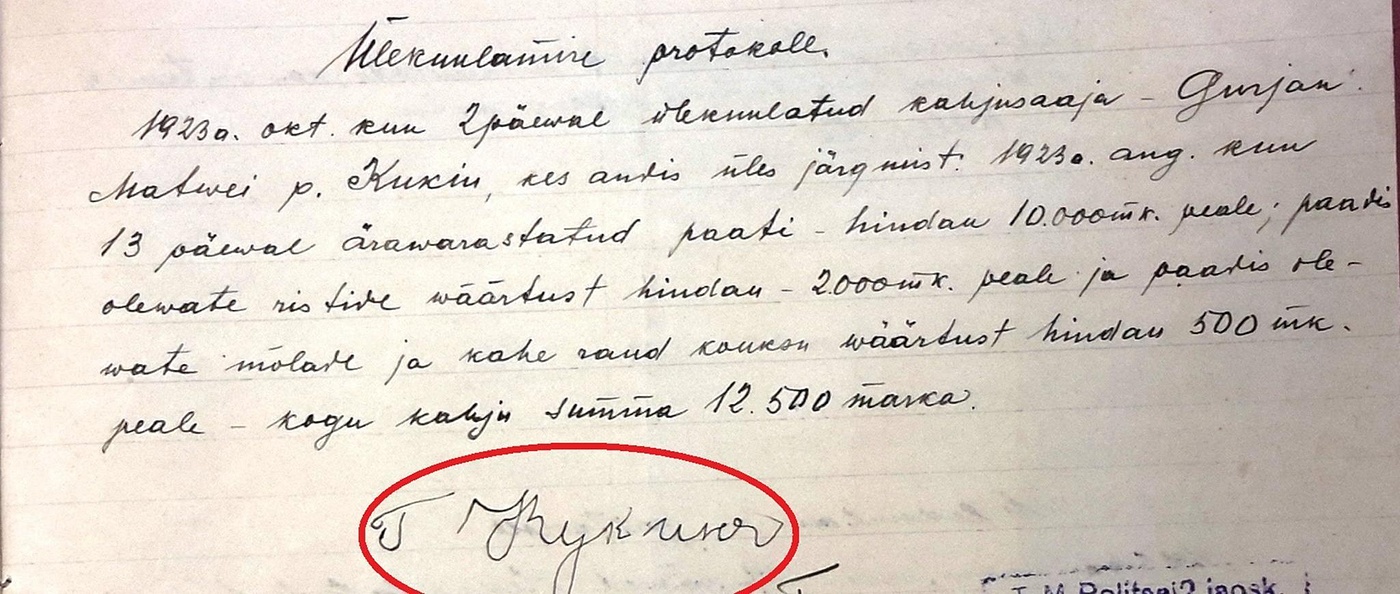 Ülekuulamise protokoll.
1923a. okt. kuu 2 päewal ülekuulatud kahjusaaja – Gurjan
Matwei p. Kukin, kes andis üles järgmist: 1923a. aug. kuu
13 päewal ärawarastatud paati – hindan 10.000 mk. peale; paadis
olewate ristide wäärtust hindan – 2000 mk. peale ja paadis ole-
wate mõlade ja kahe raud konksu wäärtust hindan 500 mk.
peale – kogu kahju summa 12.500 marka.
Г Кукинъ
Politsei 2 jaosk.